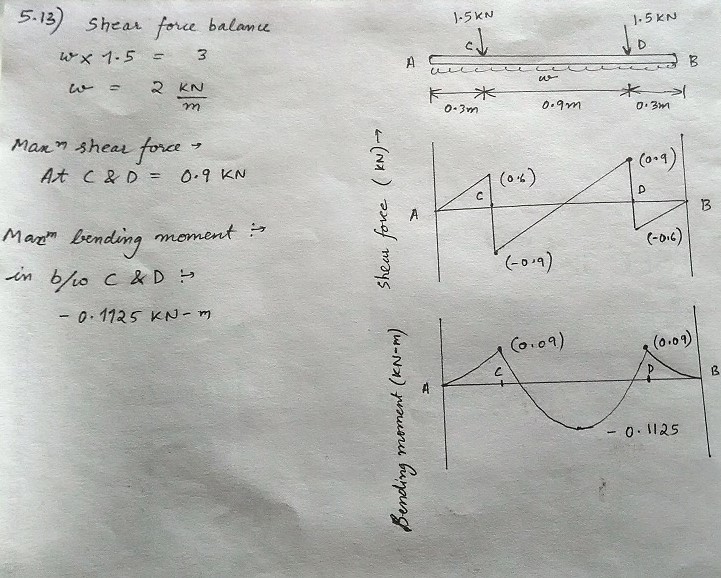 5.13) Shear force balance
w x 1.5 = 3
w = 2 KN/m
Maxm shear force →
At C & D = 0.9 KN
Maxm bending moment :→
in b/w C & D :→
- 0.1125 KN-m
1.5 KN 1.5 KN
A C D B
w
0.3m 0.9m 0.3m
Shear force (KN) →
A C D B
(0.6) (0.9)
(-0.9) (-0.6)
Bending moment (KN-m)
(0.09) (0.09)
A C D B
- 0.1125